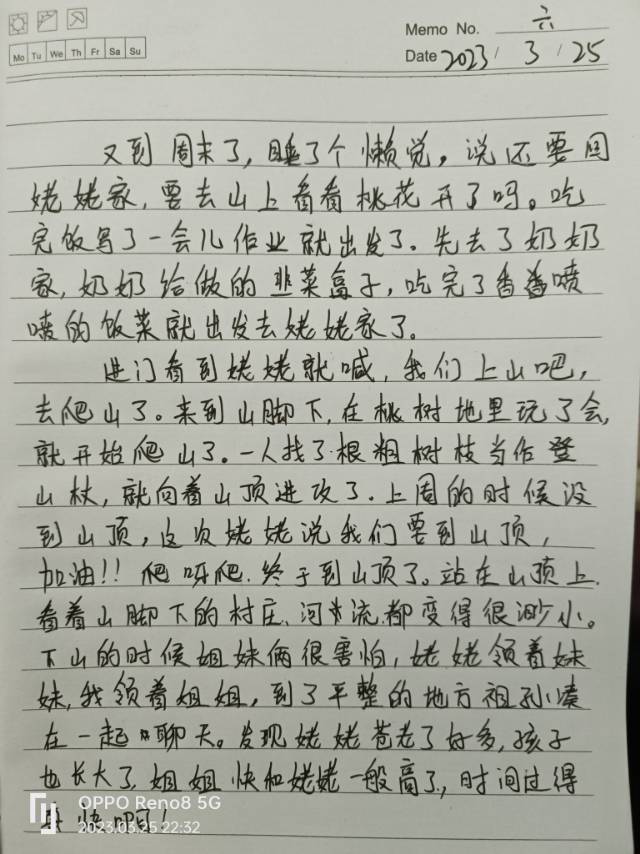 Memo No. 六
Mo Tu We Th Fr Sa Su
Date 2023 / 3 / 25
又到周末了，睡了个懒觉，说还要回
姥姥家，要去山上看看桃花开了吗。吃
完饭写了一会儿作业就出发了。先去了奶奶
家，奶奶给做的韭菜盒子，吃完了香喷
喷的饭菜就出发去姥姥家了。
进门看到姥姥就喊，我们上山吧，
去爬山了。来到山脚下，在桃树地里玩了会，
就开始爬山了。一人找了根粗树枝当作登
山杖，就向着山顶进攻了．上周的时候没
到山顶，这次姥姥说我们要到山顶，
加油!! 爬呀爬．终于到山顶了。站在山顶上．
看着山脚下的村庄、河流都变得很渺小。
下山的时候姐妹俩很害怕，姥姥领着妹
妹，我领着姐姐，到了平整的地方祖孙凑
在一起聊天。发现姥姥苍老了好多，孩子
也长大了，姐姐快和姥姥一般高了，时间过得
真快啊！
OPPO Reno8 5G
2023.03.25 22:32